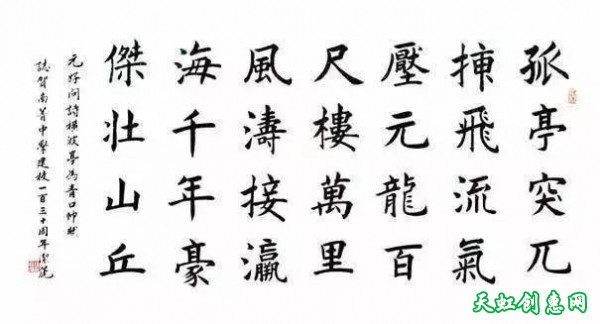 孤亭突兀
挿飛流氣
壓元龍百
尺樓萬里
風濤接瀛
海千年豪
傑壯山丘
元好問詩橫波亭為青口帥賦
誌賀南菁中學建校一百三十周年
天虹创惠网